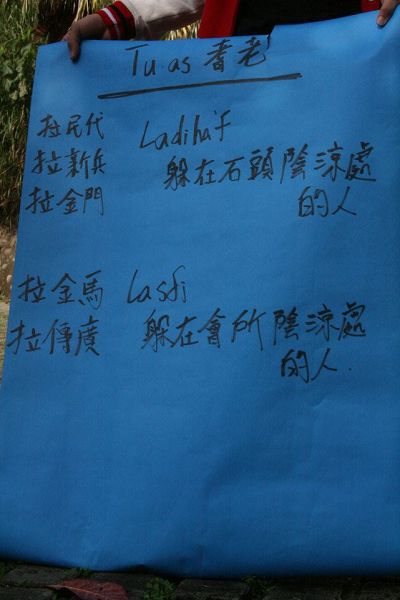 Tu.as 耆老
拉民代 Ladiha'f
拉新兵 躲在石頭陰涼處
拉金門 的人
拉金馬 Lasfi
拉傳廣 躲在會所陰涼處
的人.